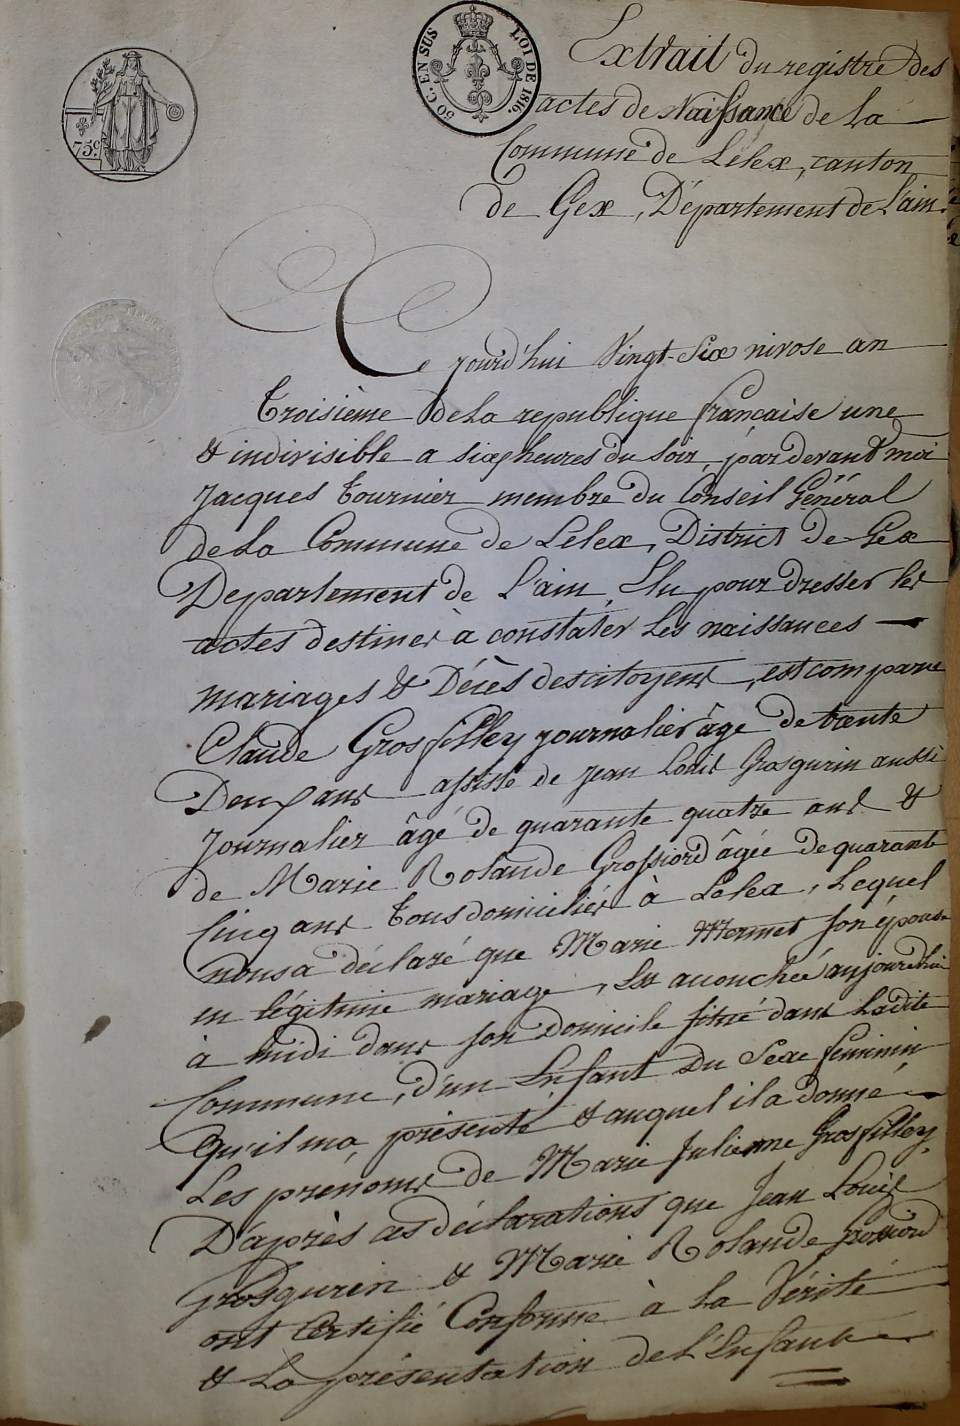 75c.
50 C. EN SUS
LOI DE 1816.
Extrait du registre des
actes de Naissance de La
Commune de Lelex, canton
de Gex, Département de L'ain.
Ce jourd'hui Vingt-Six nivose an
troisième de La republique française une
& indivisible a six heures du soir, par devant moi
Jacques Tournier membre du Conseil Général
de La Commune de Lelex, District de Gex
Departement de L'ain, Elu pour dresser les
actes destines à constater Les naissances
mariages & Décès des citoyens, est comparu
Claude Grosfilley journalier âge de trente
Deux ans assisté de Jean Louis Grosgurin aussi
Journalier âgé de quarante quatre ans &
de Marie Rolande Grossiord âgée de quarante
Cinq ans Tous domiciliés à Lelex, Lequel
nous a déclaré que Marie Mermet son épouse
en légitime mariage, Est accouchée aujourdhui
à midi dans son Domicile situé dans Ladite
Commune, d'un Enfant Du Sexe féminin
qu'il ma présenté & auquel il a donné
Les prénoms de Marie Julienne Grosfilley,
D'après ces déclarations que Jean Louis
Grosgurin & Marie Rolande Grossiord
ont Certifié Conforme à La Vérité
& La présentation de L'Enfant